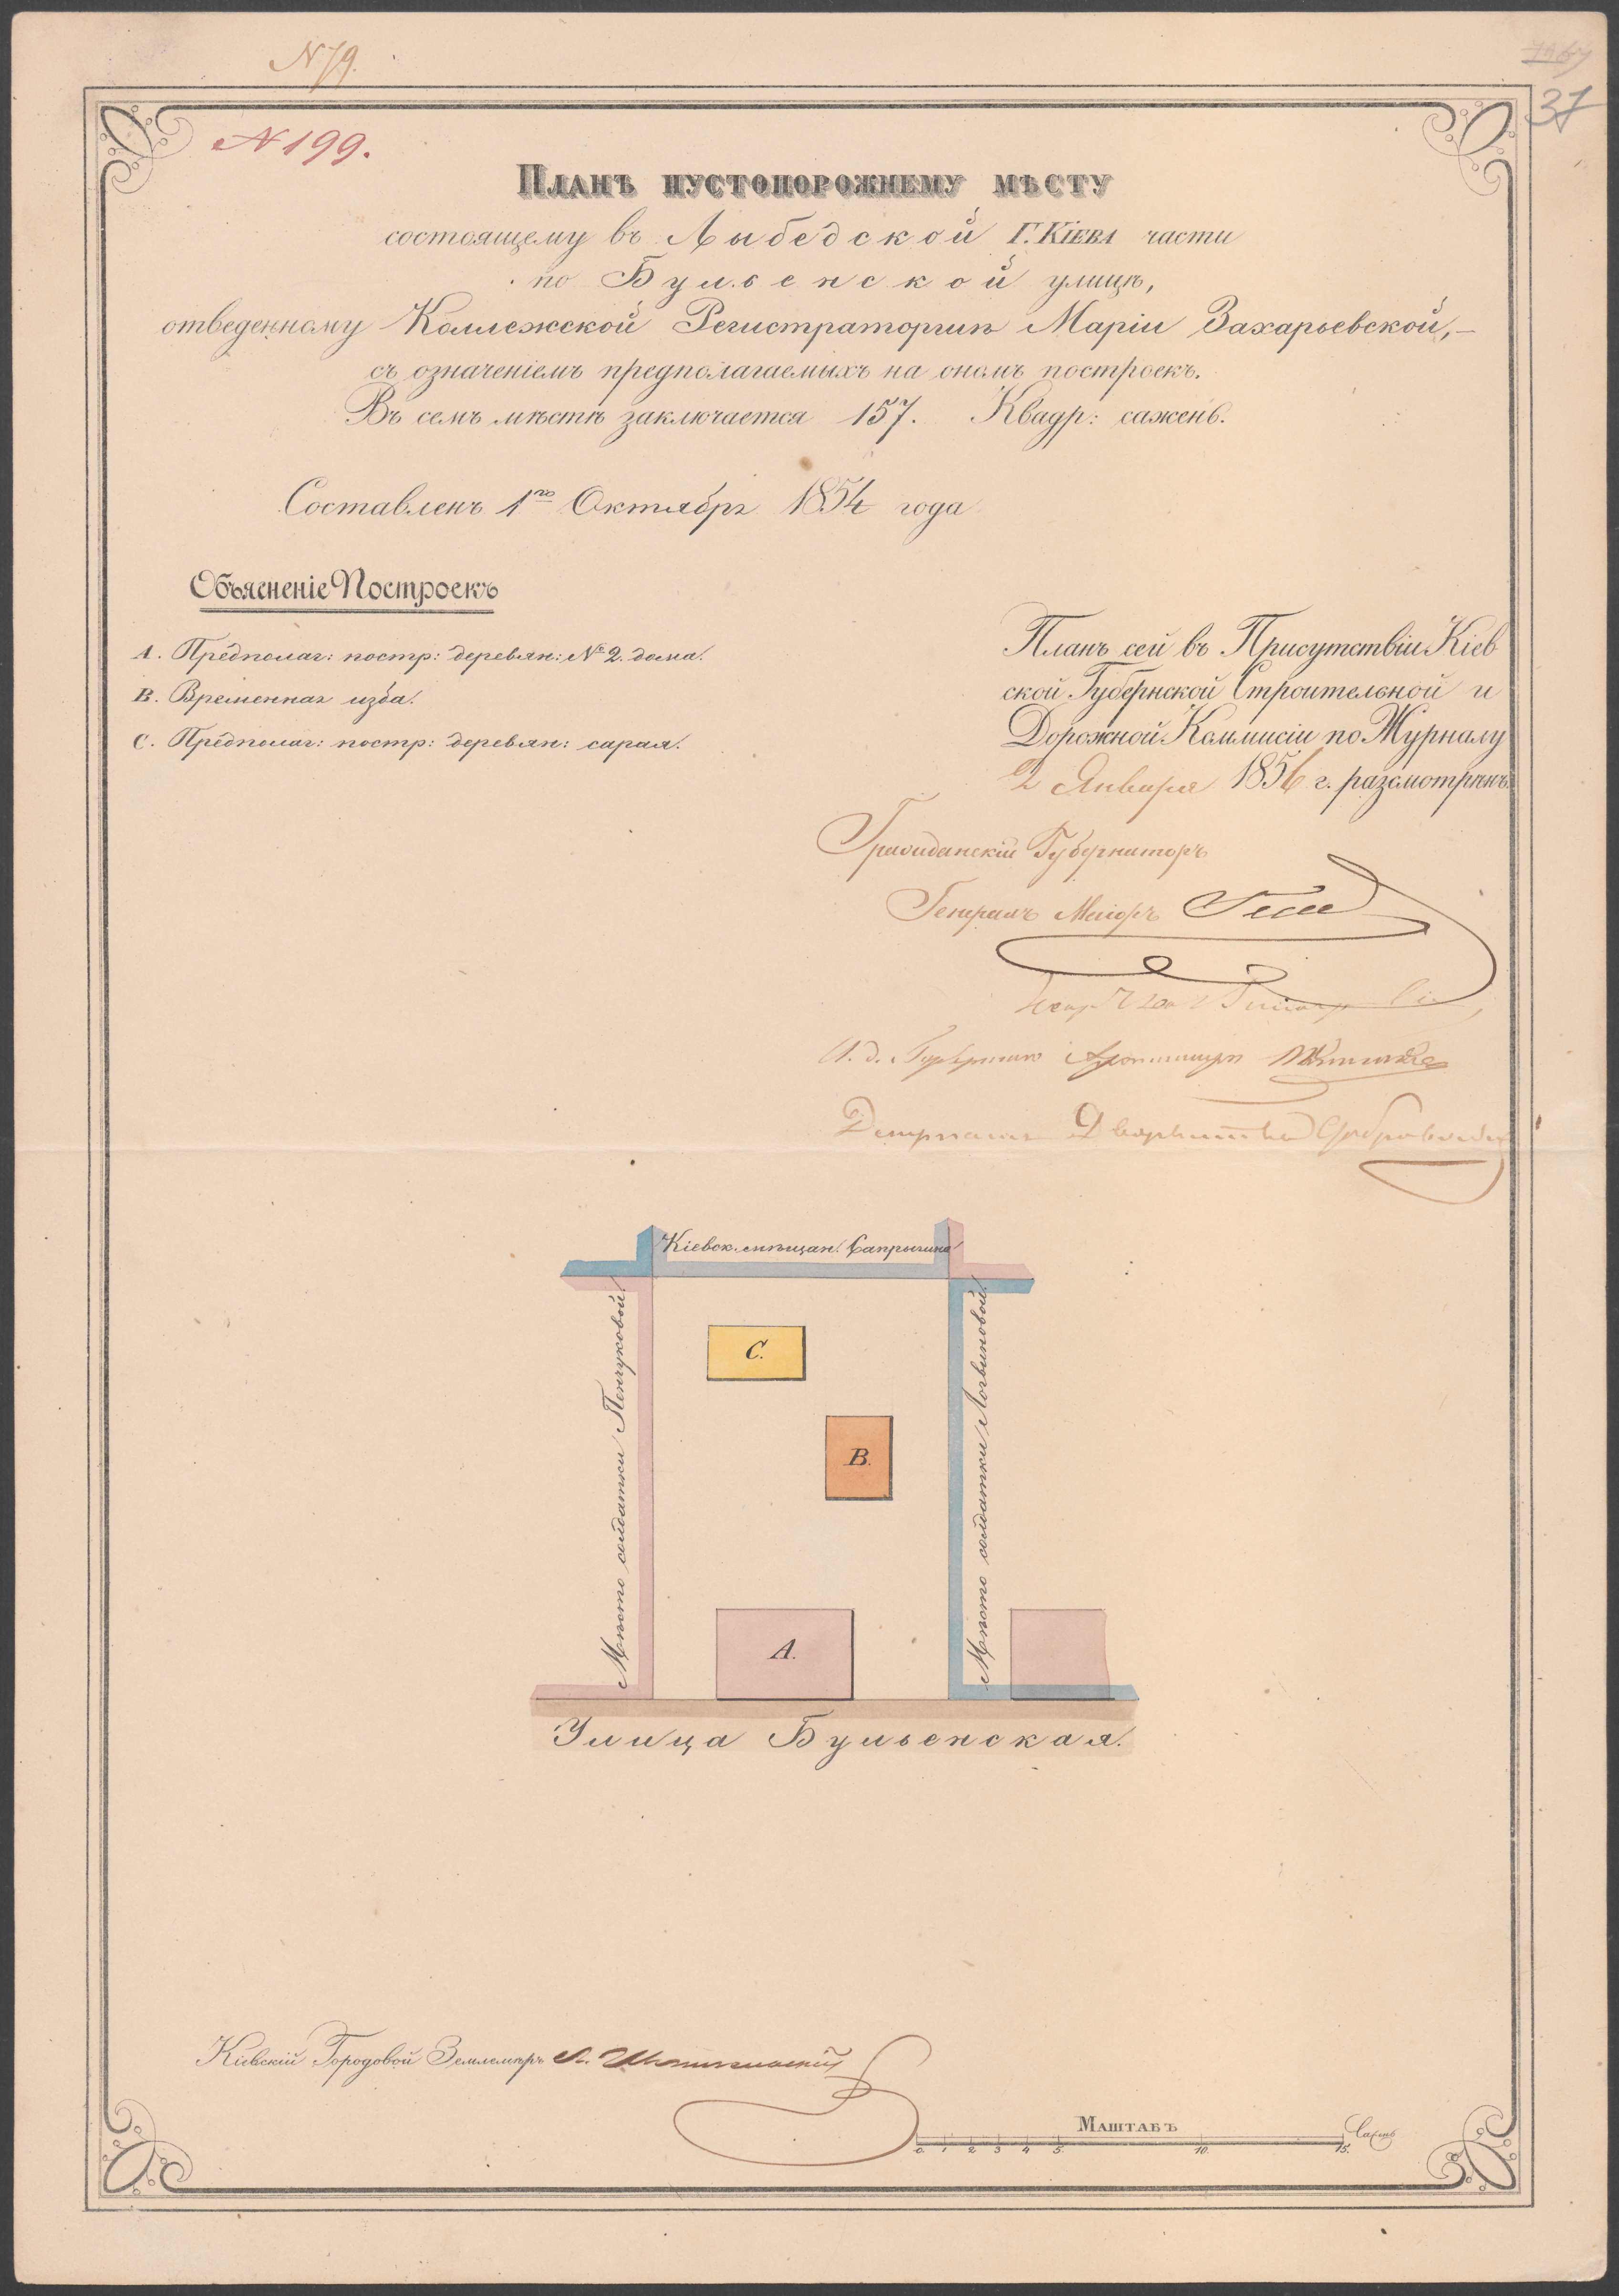 N 79.
37
N 199.
Планъ пустопорожнему мѣсту
состоящему въ Лыбедской Г. Кіева части
по Бульенской улицѣ,
отведенному Коллежской Регистраторшѣ Маріи Захарьевской,—
съ означеніемъ предполагаемыхъ на ономъ построекъ.
Въ семъ мѣстѣ заключается 157. Квадр: сажень.
Составленъ 1го Октября 1854 года
Объясненіе Построекъ
А. Предполаг: постр: деревян: № 2. дома.
В. Временная изба.
С. Предполаг: постр: деревян: сарая.
Планъ сей въ Присутствіи Кіев
ской Губернской Строительной и
Дорожной Коммисіи по Журналу
2 Января 1856 г. разсмотрѣнъ
Гражданскій Губернаторъ
Генералъ Маіоръ Гессе
И. д. Губернско Архитектора
Депутатъ Дворянства
Кіевск. мѣщан. Сапрыгина
Мѣсто солдатки Пенчуковой
Мѣсто солдатки Логвиновой
С.
В.
А.
Улица Бульенская.
Кіевскій Городовой Землемѣръ
Маштабъ
Саженъ
0 1 2 3 4 5. 10. 15.